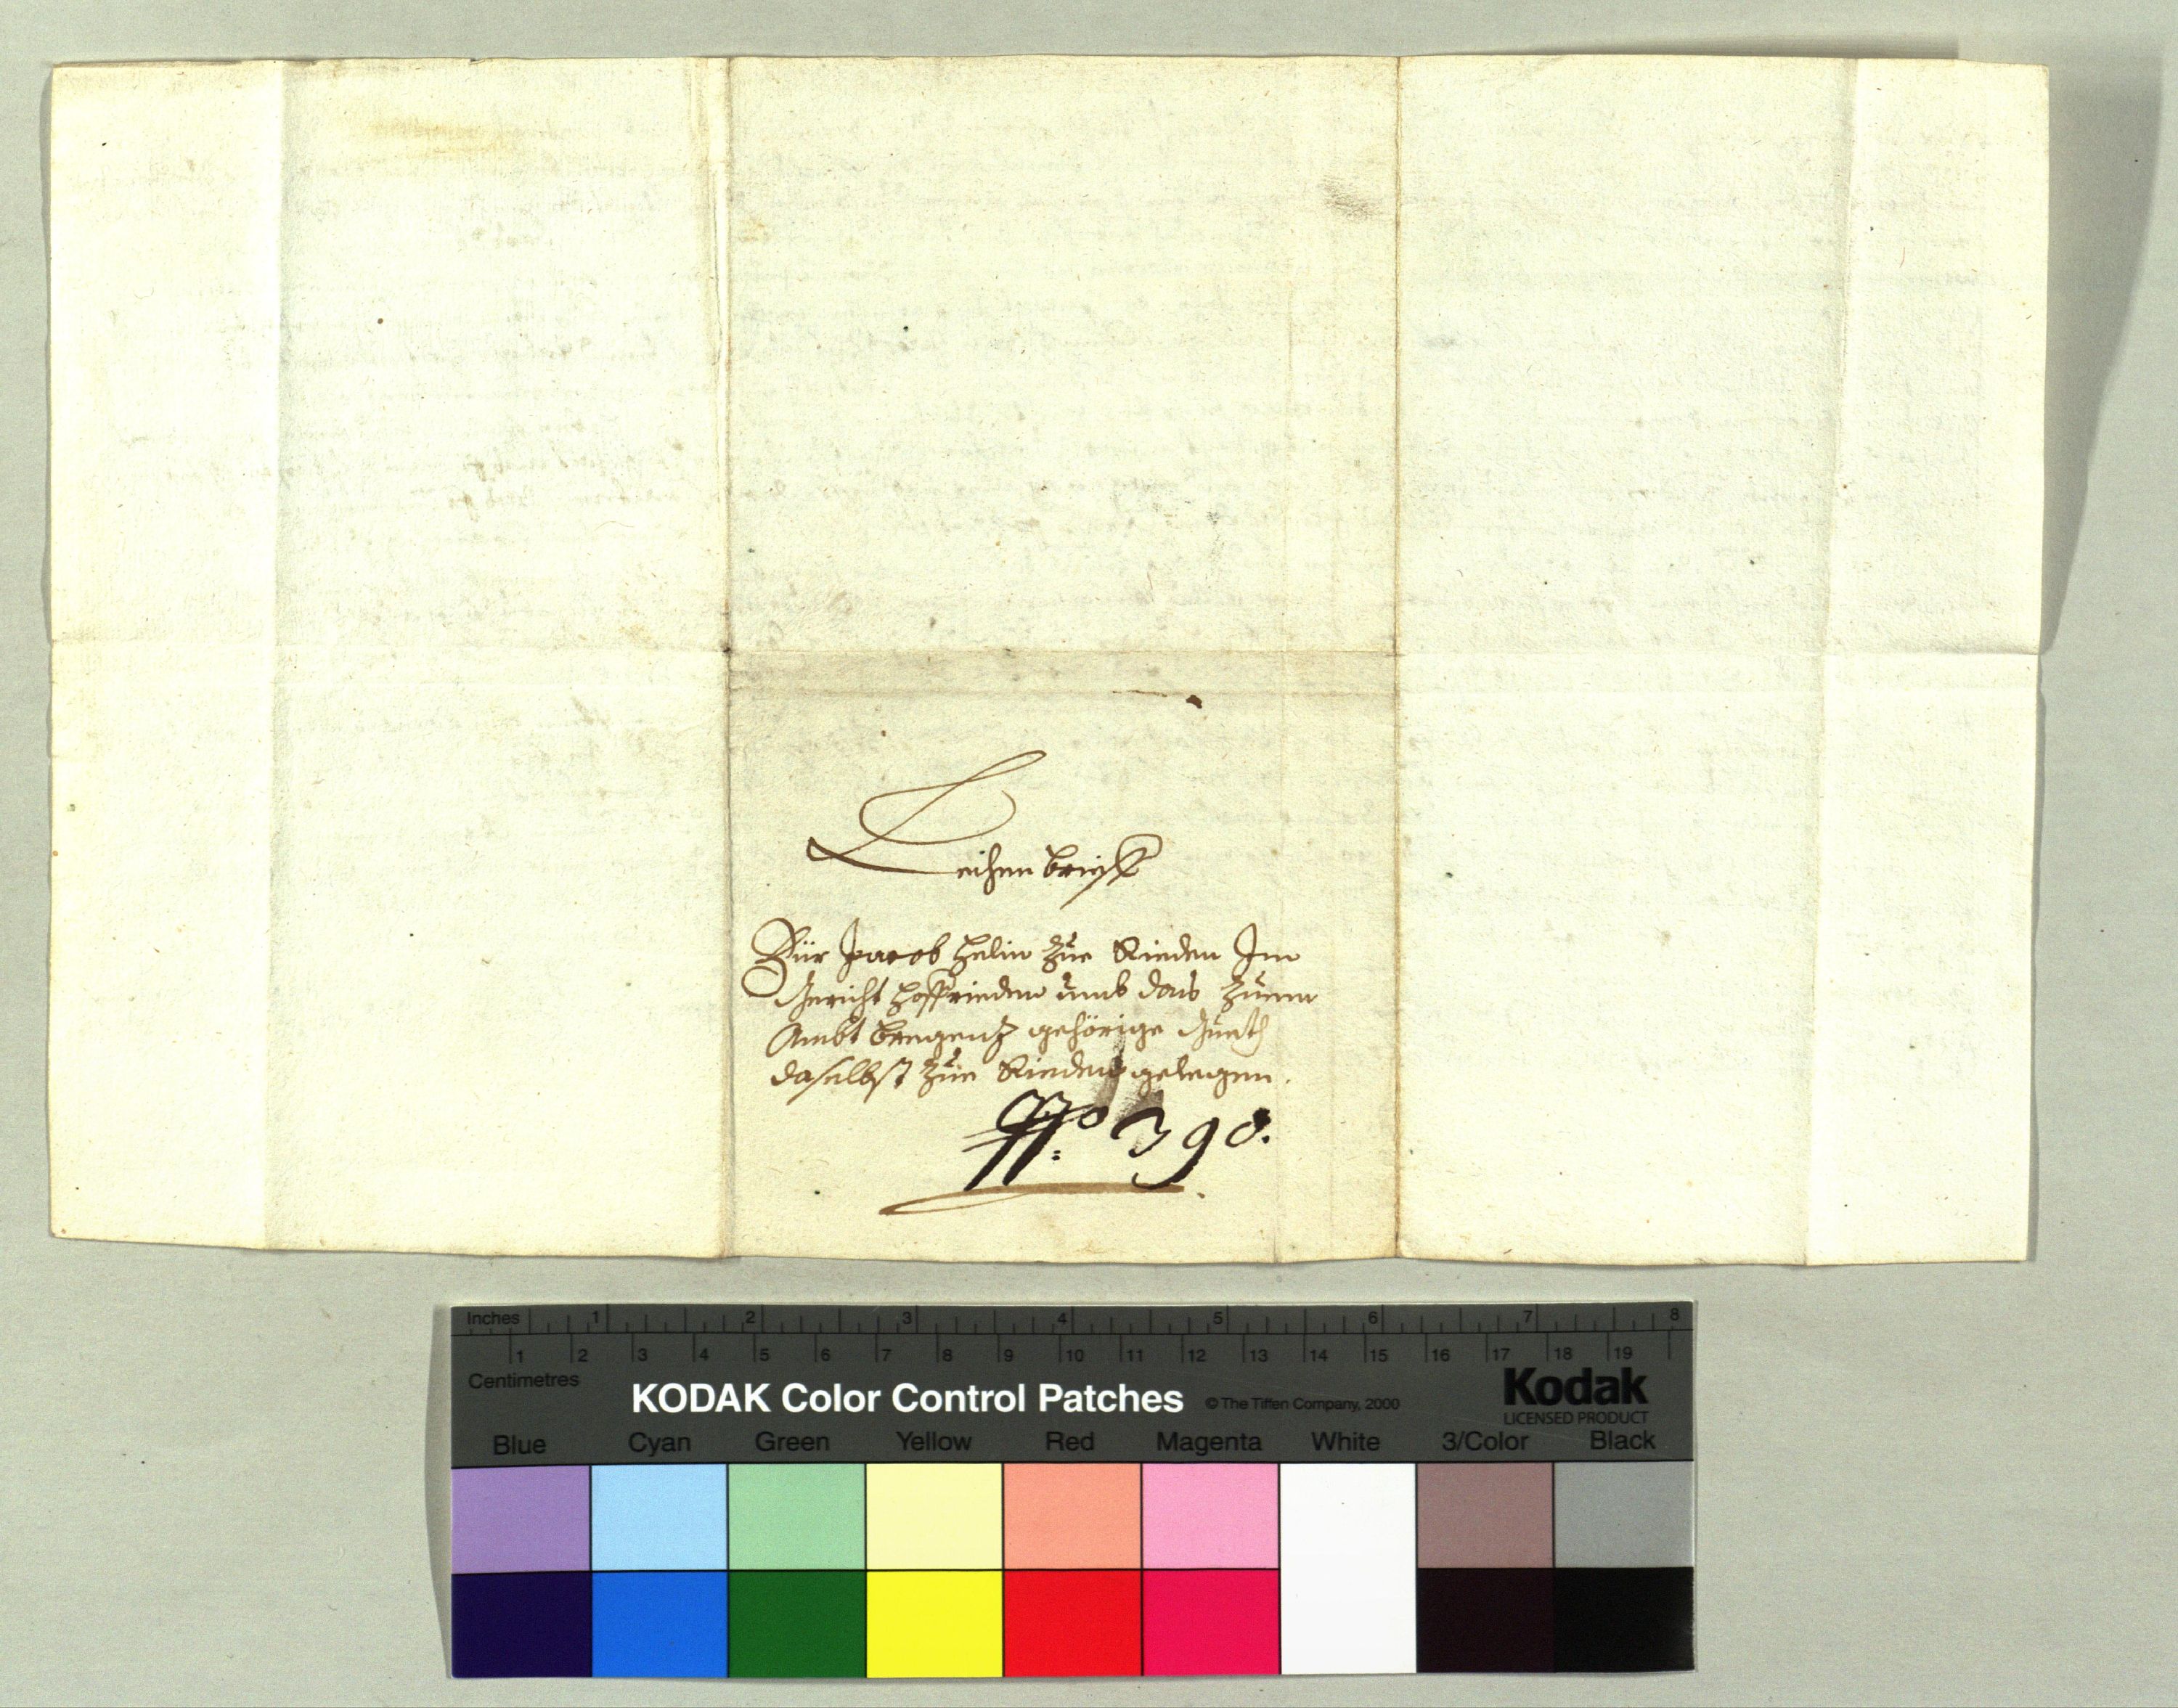 Leihenbrieff
Für Jacob Helin zue Rieden Im
Gericht Hoffrieden umb das Zuem
Ambt Bregenz gehörige Gueth
daselbst zue Rieden gelegen.
No. 390.
Inches 1 2 3 4 5 6 7 8
1 2 3 4 5 6 7 8 9 10 11 12 13 14 15 16 17 18 19
Centimetres
KODAK Color Control Patches © The Tiffen Company, 2000 Kodak
LICENSED PRODUCT
Blue Cyan Green Yellow Red Magenta White 3/Color Black